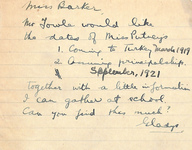 Miss Barker
Mr. Fowle would like
the dates of Miss Putney's
1. Coming to Turkey March 1919
2. Assuming principalship.
September, 1921
Together with a little information
I can gather at school.
Can you find this much?
Gladys